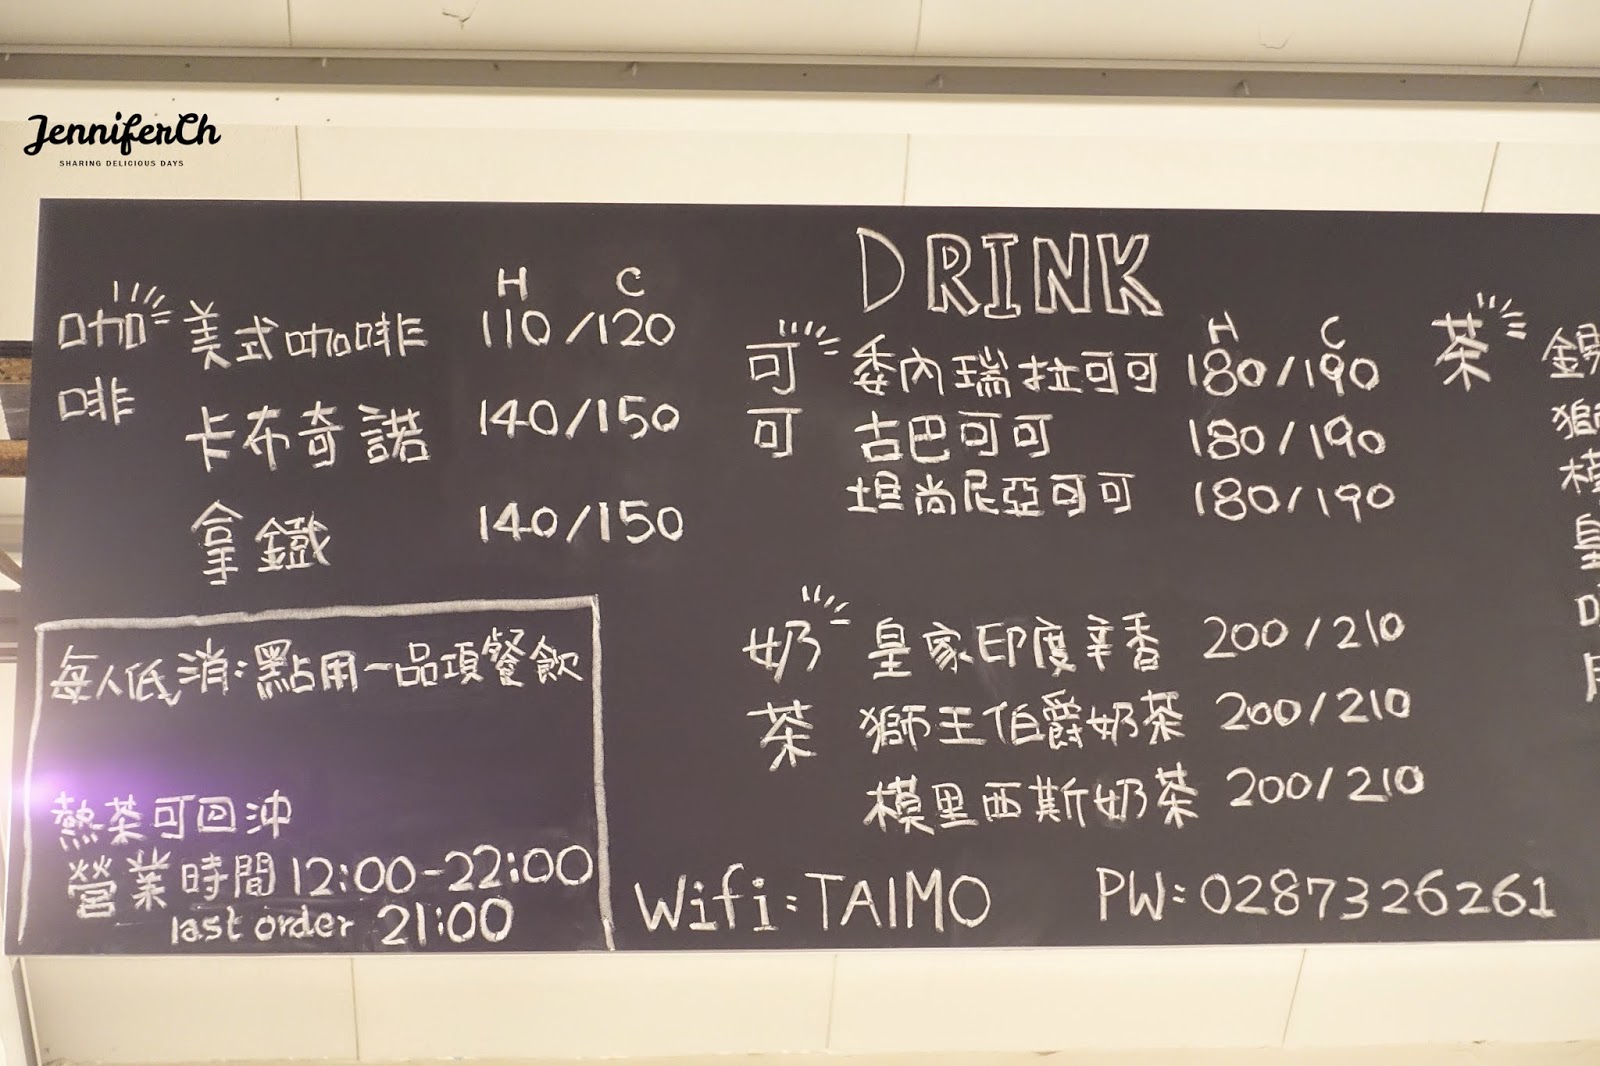 JenniferCh
SHARING DELICIOUS DAYS
DRINK
咖啡
H C
美式咖啡 110/120
卡布奇諾 140/150
拿鐵 140/150
可可
H C
委內瑞拉可可 180/190
古巴可可 180/190
坦尚尼亞可可 180/190
奶茶
皇家印度辛香 200/210
獅王伯爵奶茶 200/210
模里西斯奶茶 200/210
茶
每人低消:點用一品項餐飲
熱茶可回沖
營業時間 12:00-22:00
last order 21:00
Wifi:TAIMO PW:0287326261